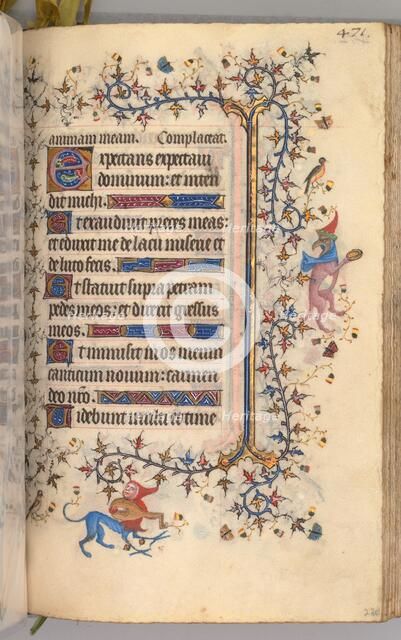 471
animam meam. Complaceat.
Expectans expectaui
dominum: et inten
dit michi.
Et exaudiuit preces meas:
et eduxit me de lacu miserie et
de luto fecis.
Et statuit supra petram
pedes meos: et direxit gressus
meos.
Et inmisit in os meum
canticum nouum: carmen
deo nr̃o.
Uidebunt multi et time
Heritage
Heritage
Heritage
Heritage